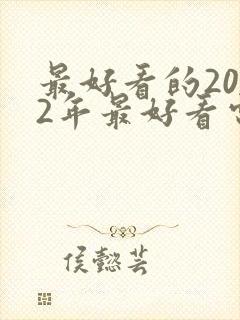 最好看的20
2年最好看
侯懿芸